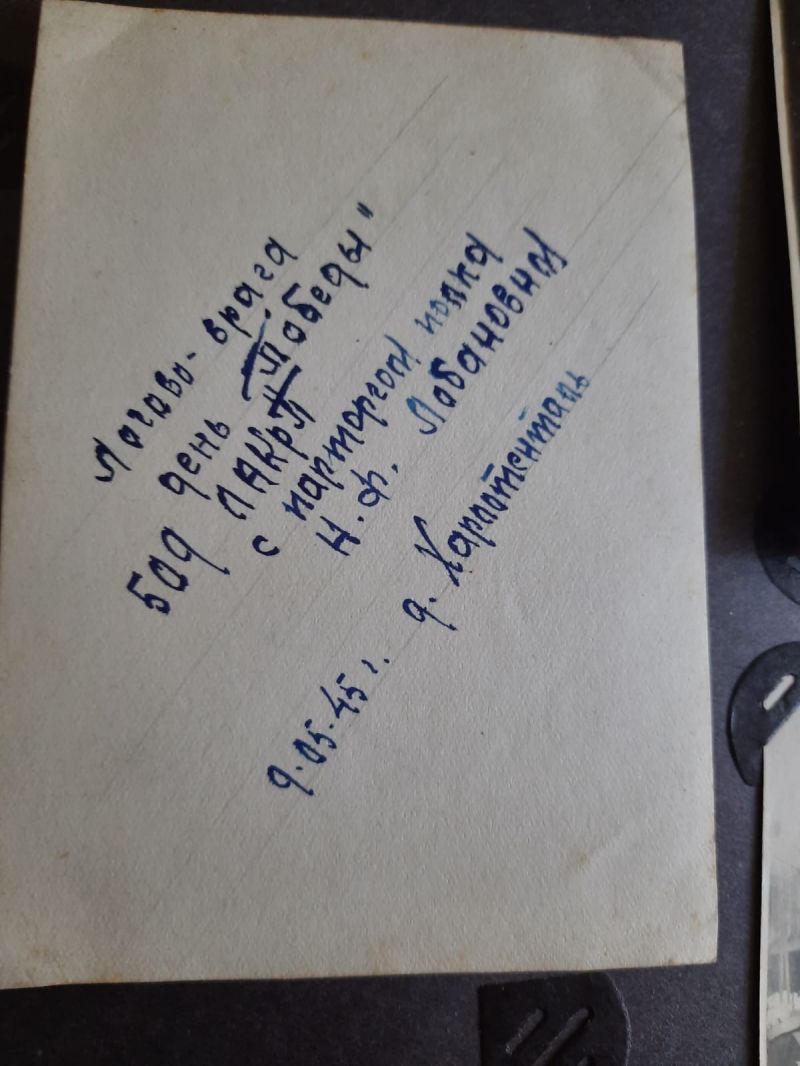 Логово - врага
день „Победы"
509 ЛАКрП
с парторгом полка
Н. Ф. Лобановным
9.05.45 г. д. Харпотенталь